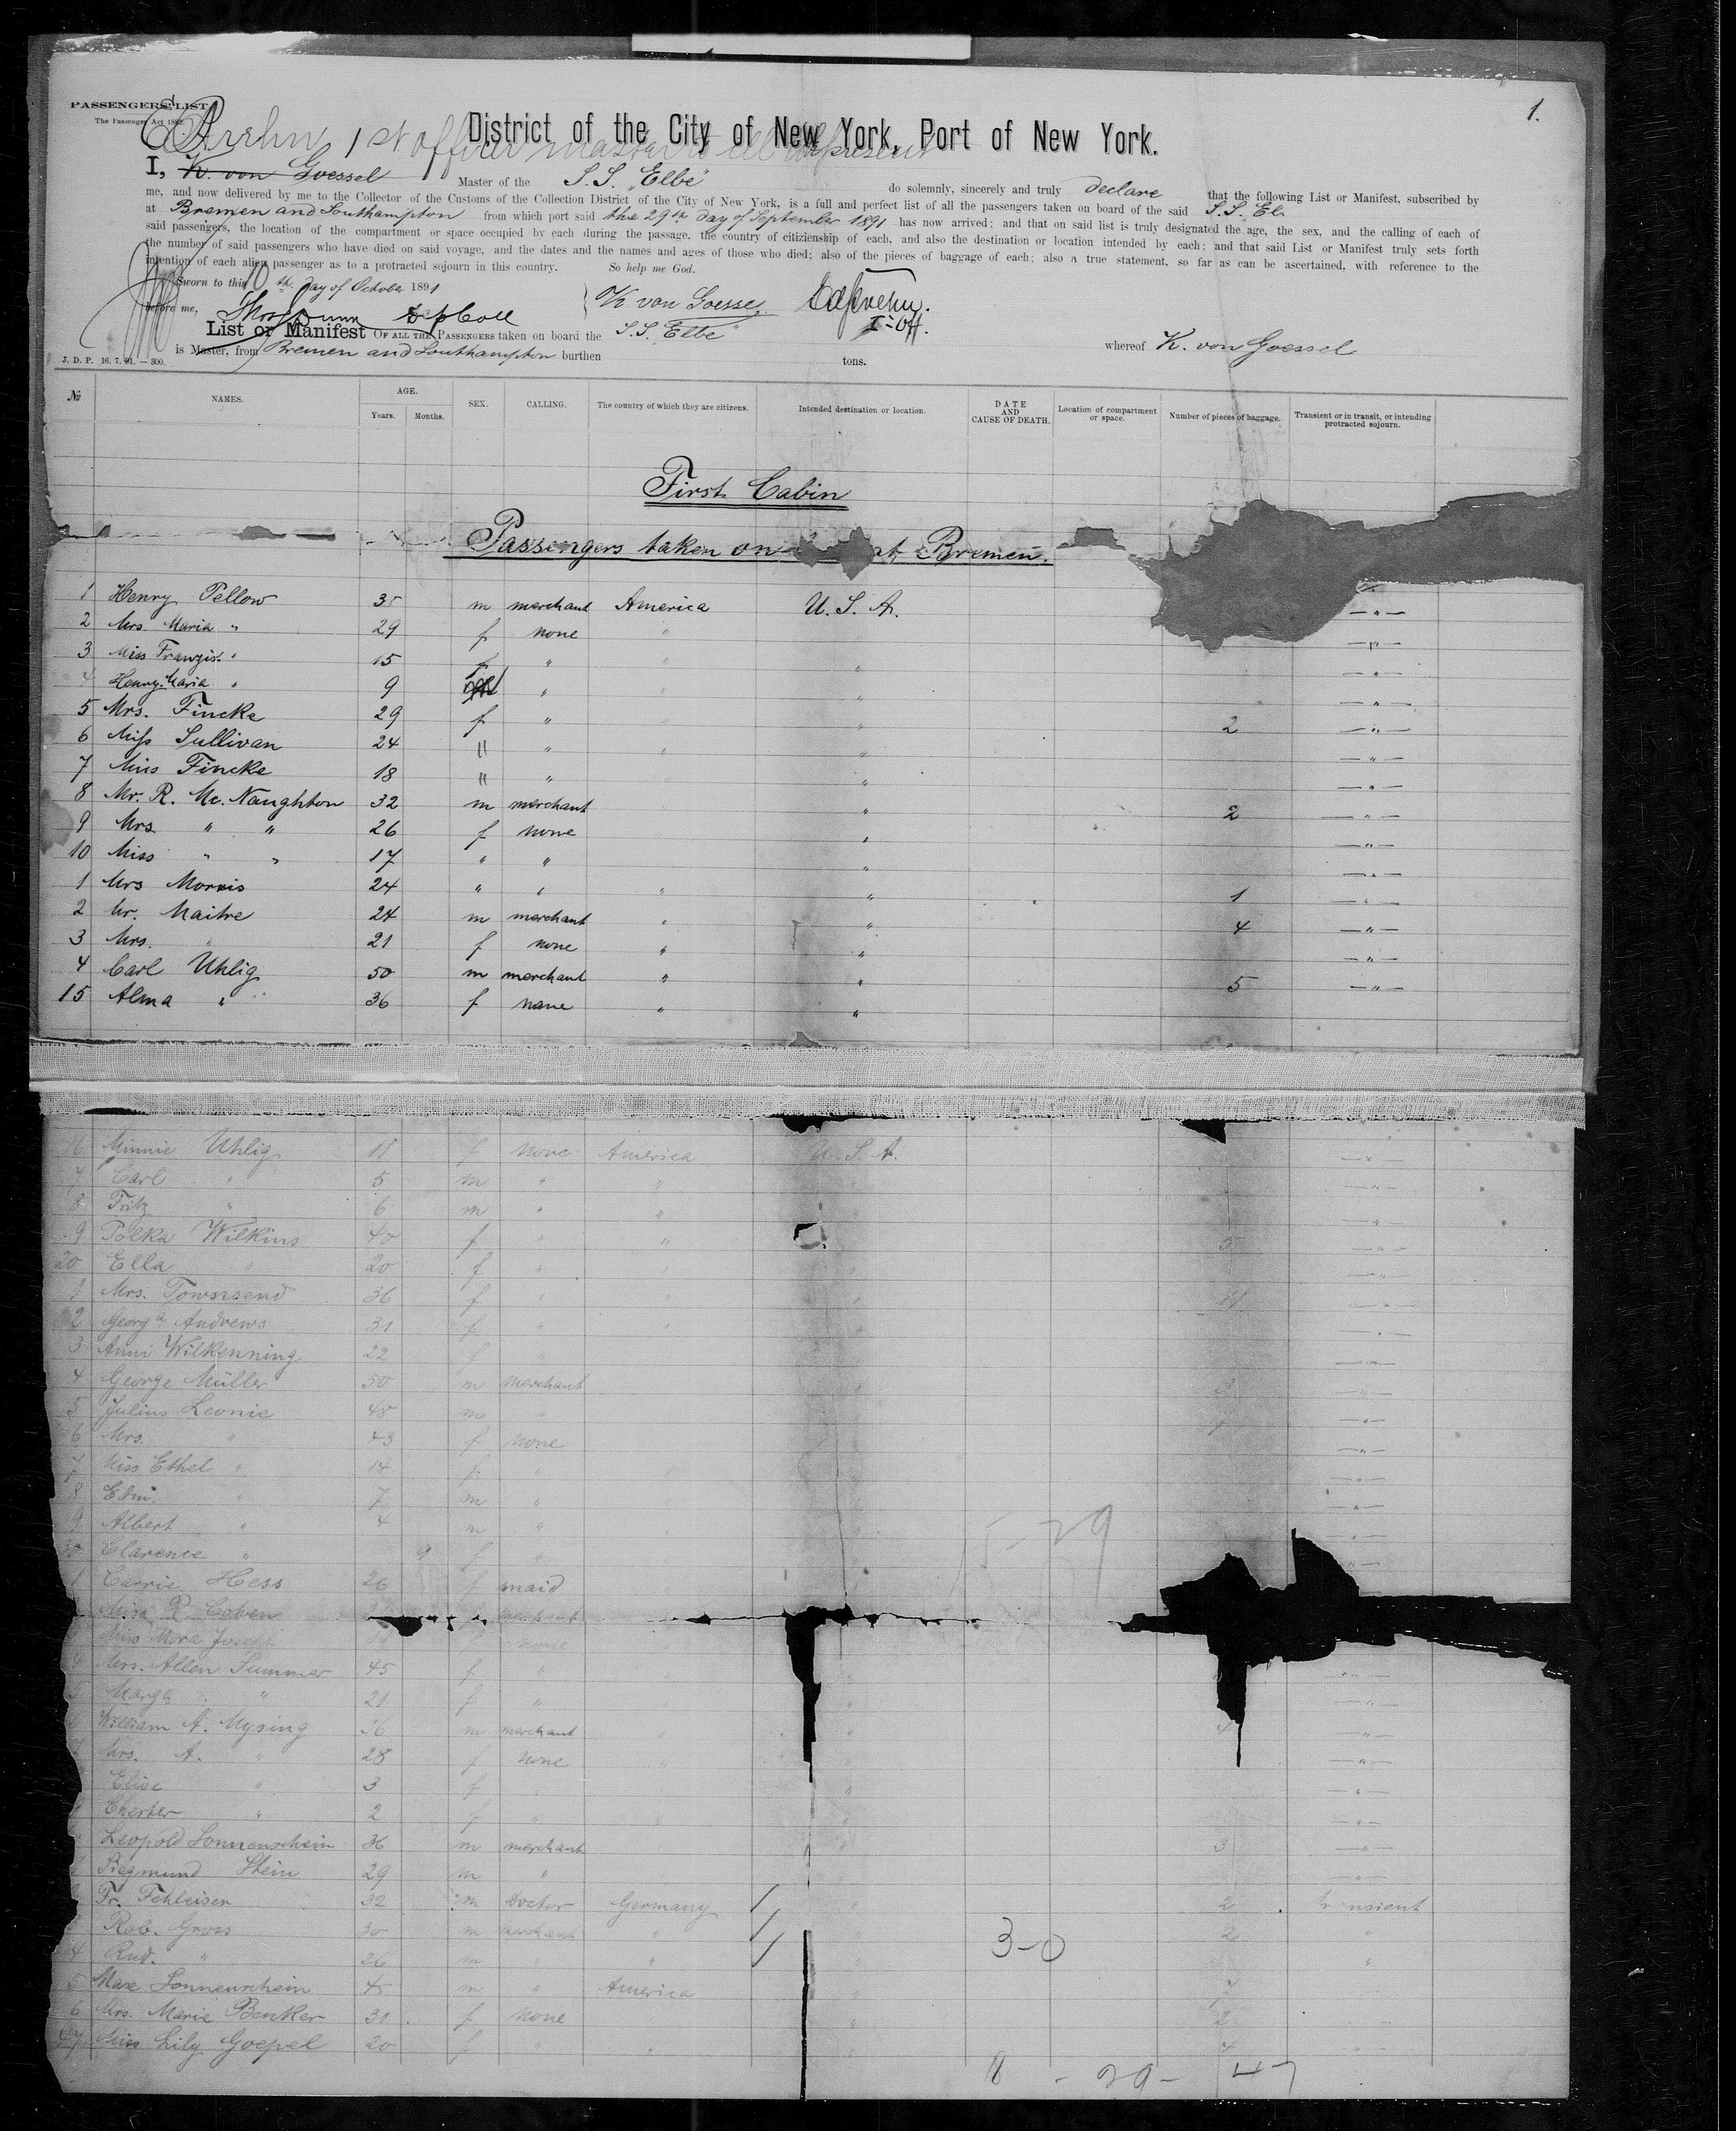 1.
PASSENGERS LIST
The Passenger Act 1882.
District of the City of New York, Port of New York.
1st officer
I, K. von Goessel Master of the S.S. "Elbe" do solemnly, sincerely and truly declare that the following List or Manifest, subscribed by
me, and now delivered by me to the Collector of the Customs of the Collection District of the City of New York, is a full and perfect list of all the passengers taken on board of the said S.S. El
at Bremen and Southampton from which port said the 29th day of September 1891 has now arrived; and that on said list is truly designated the age, the sex, and the calling of each of
said passengers, the location of the compartment or space occupied by each during the passage, the country of citizienship of each, and also the destination or location intended by each; and that said List or Manifest truly sets forth
the number of said passengers who have died on said voyage, and the dates and the names and ages of those who died; also of the pieces of baggage of each; also a true statement, so far as can be ascertained, with reference to the
intention of each alien passenger as to a protracted sojourn in this country. So help me God.
Sworn to this 10th day of October 1891
before me, Thos Dunn Dep Coll K von Goessel
I. Off.
List or Manifest OF ALL THE PASSENGERS taken on board the S.S. "Elbe" whereof K. von Goessel
is Master, from Bremen and Southampton burthen tons.
J. D. P. 16. 7. 91. — 300.
№ NAMES. AGE. Years. Months. SEX. CALLING. The country of which they are citizens. Intended destination or location. DATE AND CAUSE OF DEATH. Location of compartment or space. Number of pieces of baggage. Transient or in transit, or intending protracted sojourn.
First Cabin
Passengers taken on at Bremen.
1 Henry Pellow 35 m merchant America U. S. A. — " —
2 Mrs. Maria " 29 f none " — " —
3 Miss Franzis. " 15 f " " " — " —
4 Henny Maria " 9 " " " — " —
5 Mrs. Fincke 29 f " " 2 — " —
6 Miss Sullivan 24 " " " " — " —
7 Miss Fincke 18 " " " — " —
8 Mr. R. Mc. Naughton 32 m merchant " 2 — " —
9 Mrs. " " 26 f none " — " —
10 Miss " " 17 " " " — " —
1 Mrs Morris 24 " " " " 1 — " —
2 Mr. Maitre 24 m merchant " " 4 — " —
3 Mrs. " 21 f none " " — " —
4 Carl Uhlig 50 m merchant " " 5 — " —
15 Alma " 36 f none " "
16 Minnie Uhlig 11 f none America U. S. A. — " —
7 Carl " 5 m " " — " —
8 Fritz " 6 m " " — " —
9 Polka Wilkins 40 f " " 5 — " —
20 Ella " 20 f " — " —
1 Mrs. Townsend 36 f " " — " —
2 Georga Andrews 31 f " " — " —
3 Anni Wilkenning 22 f " — " —
4 George Müller 50 m merchant 3 — " —
5 Julius Leonie 48 m " — " —
6 Mrs. " 43 f none — " —
7 Miss Ethel " 14 f " — " —
8 Edm. " 7 m " — " —
9 Albert " 4 m " — " —
30 Clarence " 9 f " — " —
1 Carrie Hess 26 f maid
Miss R. Cohen
Miss Joseph none
4 Mrs. Allen Summer 45 f " — " —
5 Marga " 21 f " — " —
6 William A. Mysing 36 m merchant " 4 — " —
7 Mrs. A. " 28 f none " — " —
Elise " 3 f " — " —
Chester " 2 f " — " —
Leopold Sonnenschein 36 m merchant " 3 — " —
1 Siegmund Stein 29 m " — " —
Fr. Fehleisen 32 m Doctor Germany " 2 transient
Rob. Gross 30 m merchant " " 2 "
4 Rud. " 26 m " " " "
3-0
5 Max Sonnenschein 45 m " America "
6 Mrs. Marie Benker 31 f none " 2
47 Miss Lily Goepel 20 f " " 4